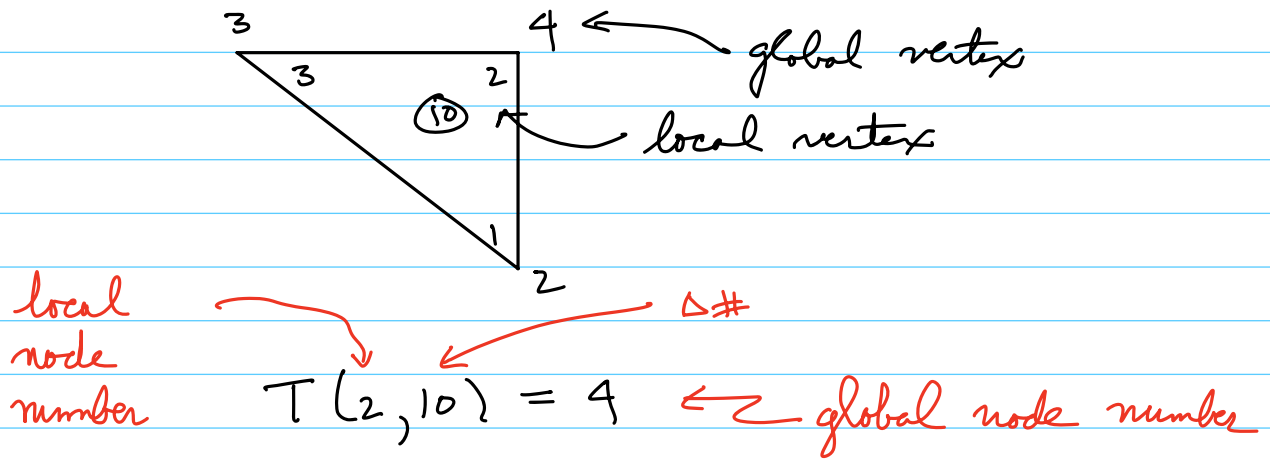 3 4 global vertex
3 2
10 local vertex
1
2
local Δ#
node
number T(2,10) = 4 global node number